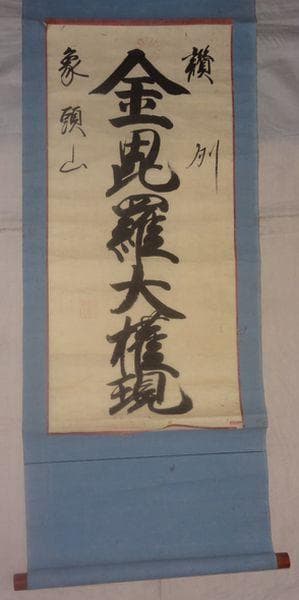 讃州
金毘羅大権現
象頭山